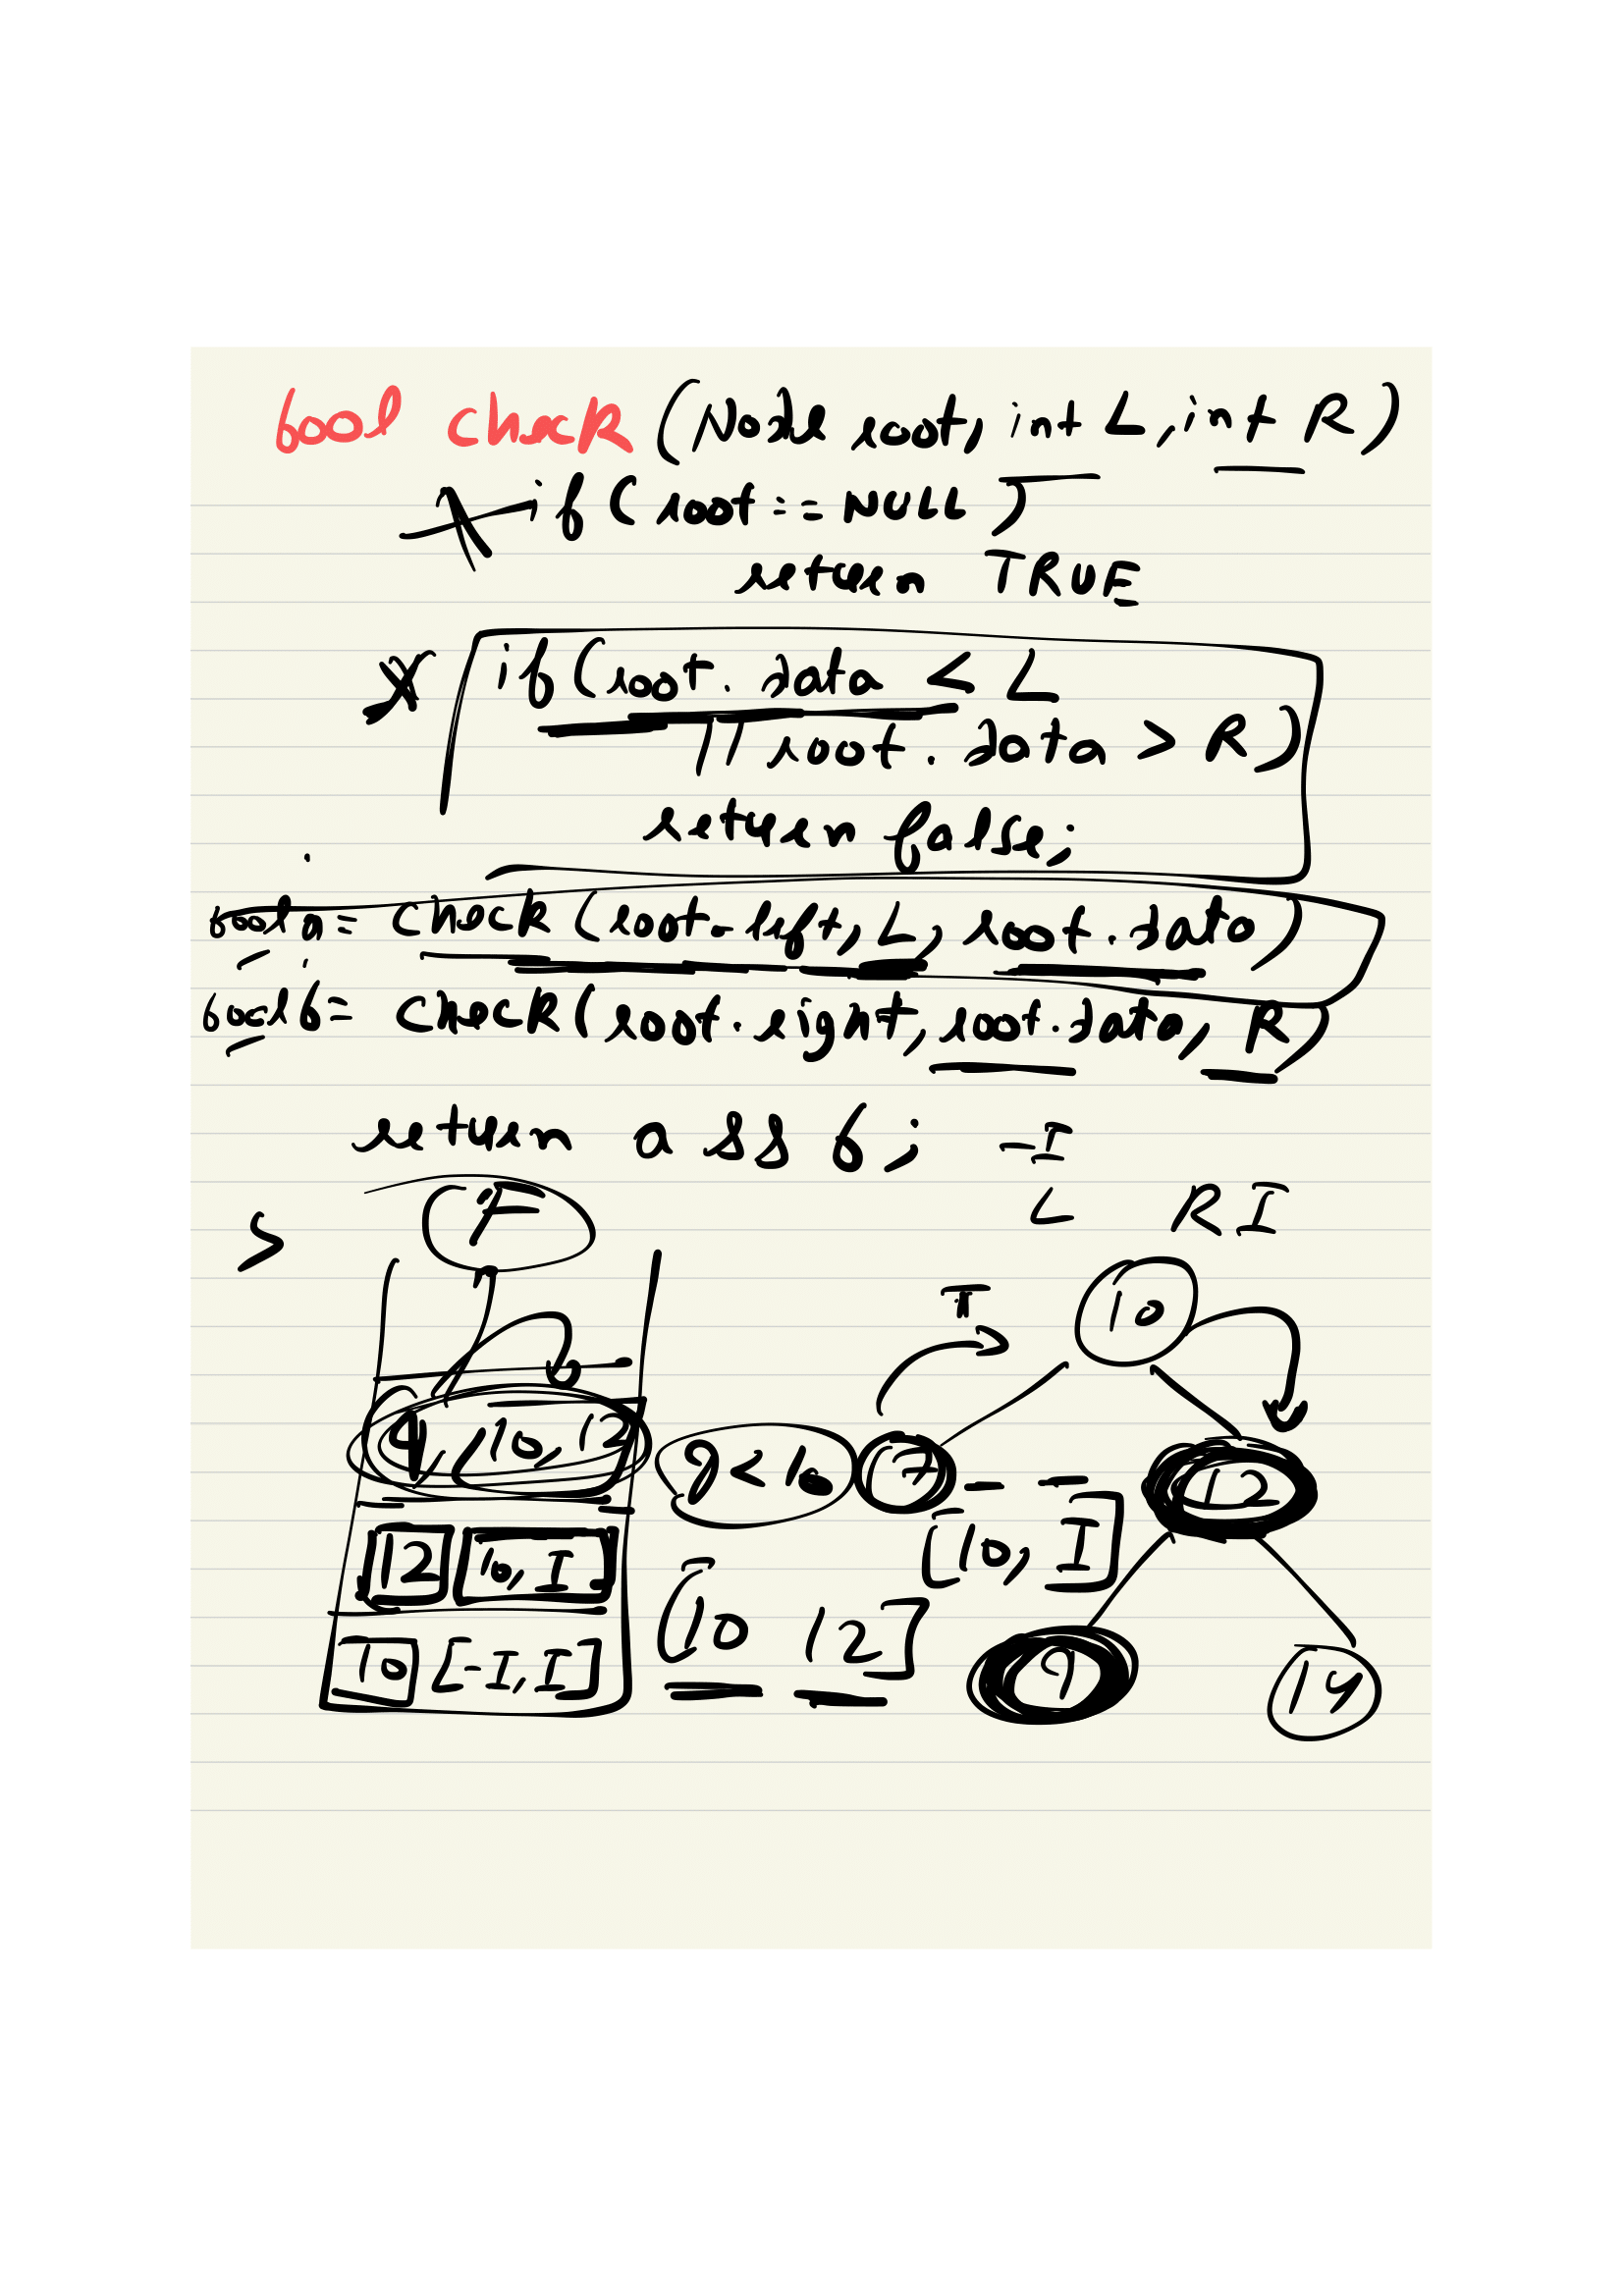 bool check (Node root, int L, int R)
if (root == NULL)
return TRUE
if (root.data < L
|| root.data > R)
return false;
bool a = check (root.left, L, root.data)
bool b = check (root.right, root.data, R)
return a && b;
-I
L R I
> F
T
10
9, 10, 12
9 < 10
7
12
12 [10, I]
[10, I]
[10 12]
10 [-I, I]
9
14